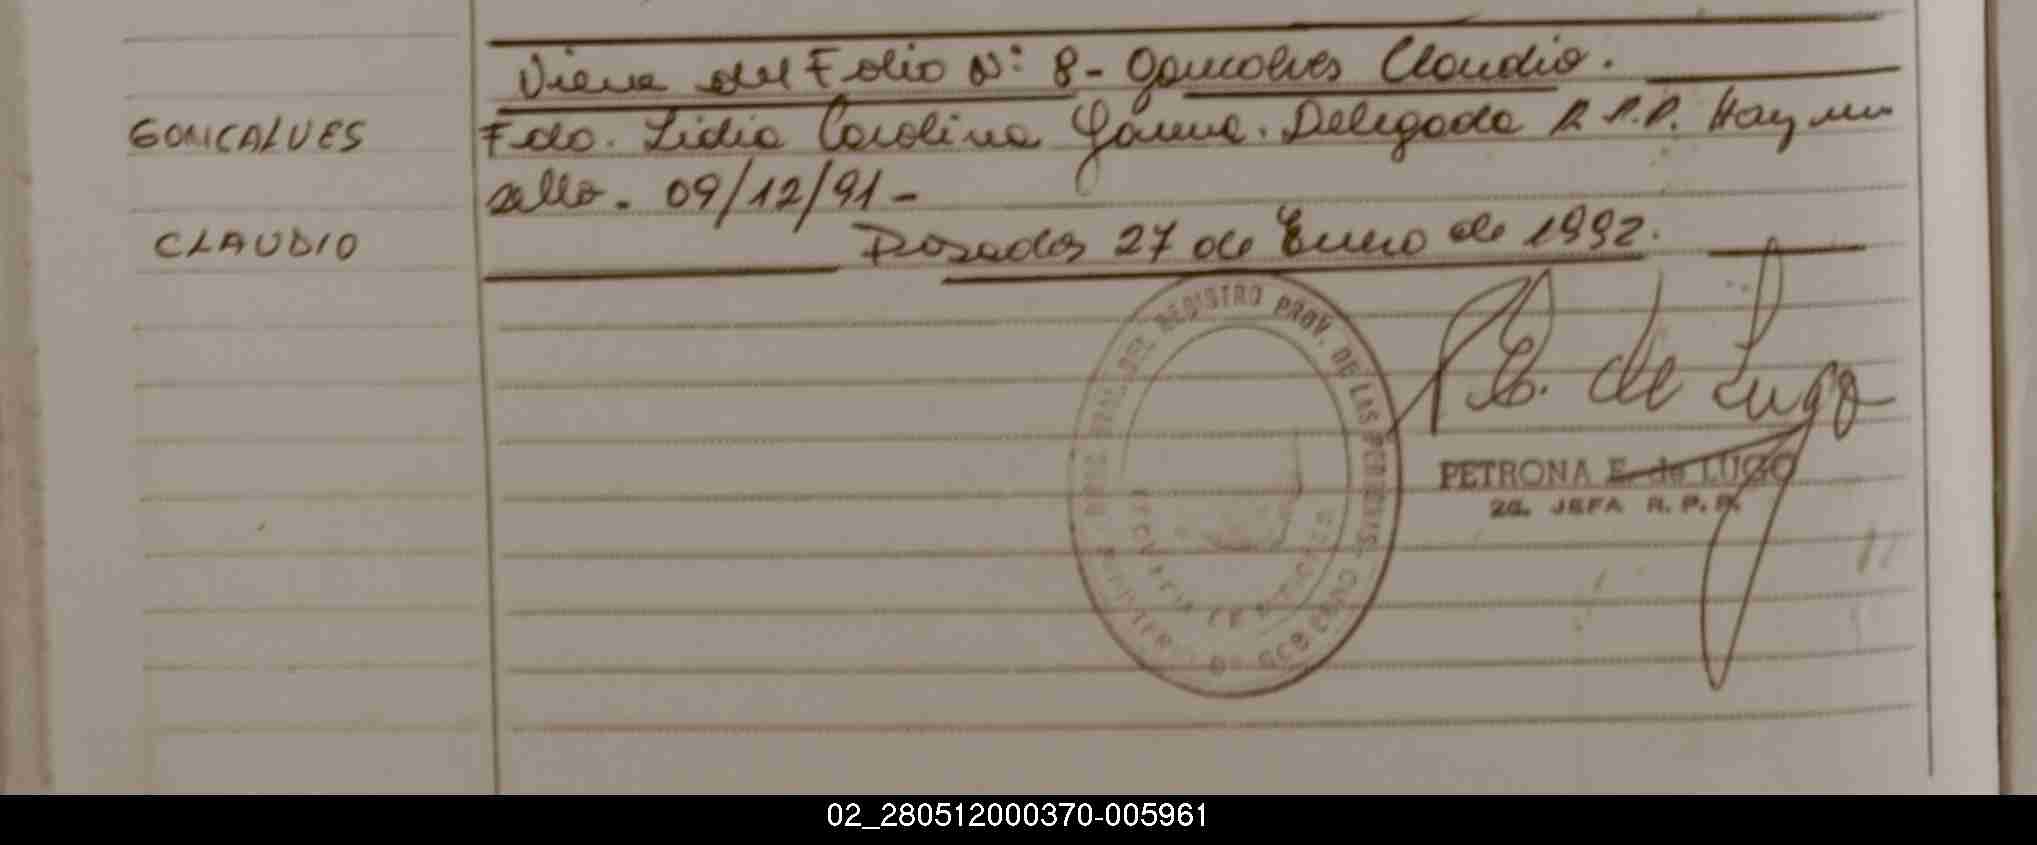 Viene del Folio Nº 8 - Goncalves Claudio.
GONCALVES
Fdo. Lidia Carolina Delegada R.P.P. Hay un
sello. 09/12/91 -
CLAUDIO
Posadas 27 de Enero de 1992.
REGISTRO PROV. DE LAS PERSONAS
GOBIERNO
P. E. de Lugo
PETRONA E. de LUGO
2a. JEFA R. P. P.
02_280512000370-005961